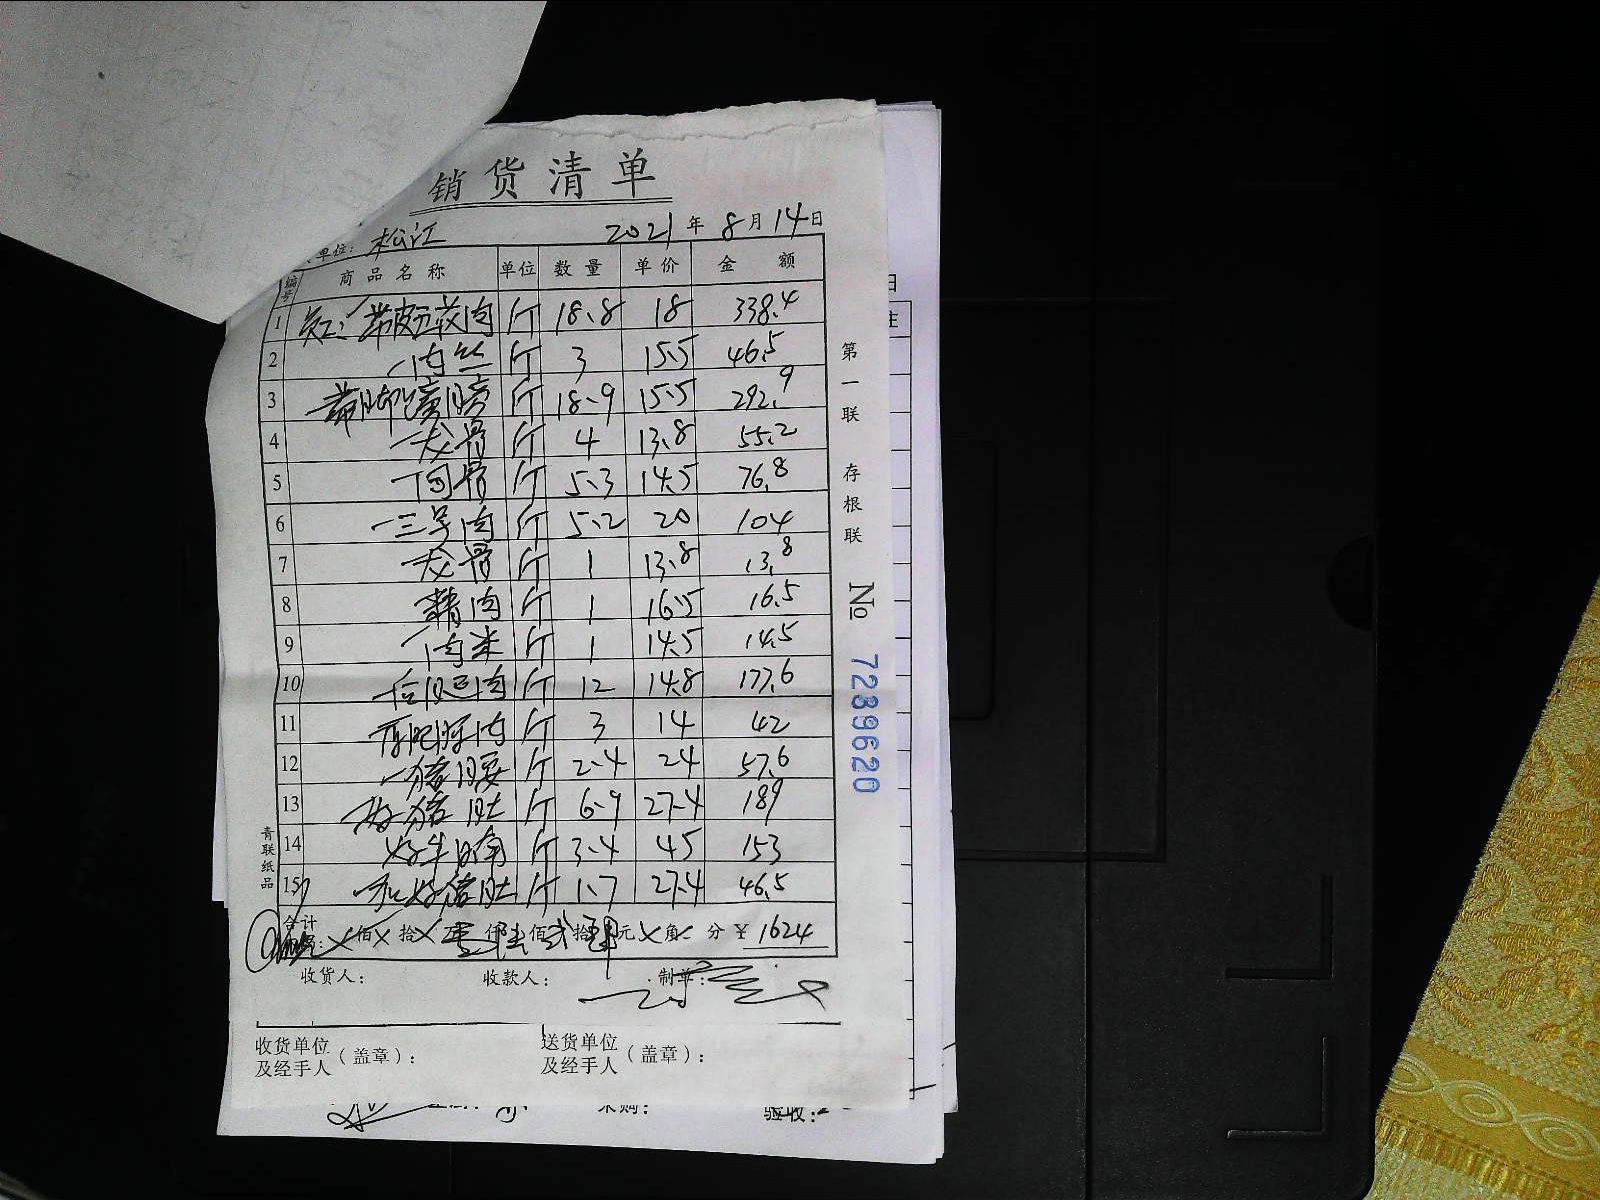 销货清单
单位: 松江 2021年8月14日
编号 商品名称 单位 数量 单价 金额
1 员工: 带皮五花肉 斤 18.8 18 338.4
2 肉丝 斤 3 15.5 46.5
3 带脚蹄膀 斤 18.9 15.5 292.9
4 龙骨 斤 4 13.8 55.2
5 筒骨 斤 5.3 14.5 76.8
6 三号肉 斤 5.2 20 104
7 龙骨 斤 1 13.8 13.8
8 精肉 斤 1 16.5 16.5
9 肉米 斤 1 14.5 14.5
10 后腿肉 斤 12 14.8 177.6
11 肥膘肉 斤 3 14 42
12 猪腰 斤 2.4 24 57.6
13 好猪肚 斤 6.9 27.4 189
14 好牛腩 斤 3.4 45 153
15 好猪肚 斤 1.7 27.4 46.5
合计 佰 拾 万 壹仟 陆佰 贰拾 肆元 角 分 ¥1624
收货人: 收款人: 制单:
收货单位及经手人(盖章): 送货单位及经手人(盖章):
第一联 存根联
№ 7239620
青联纸品
采购: 验收: